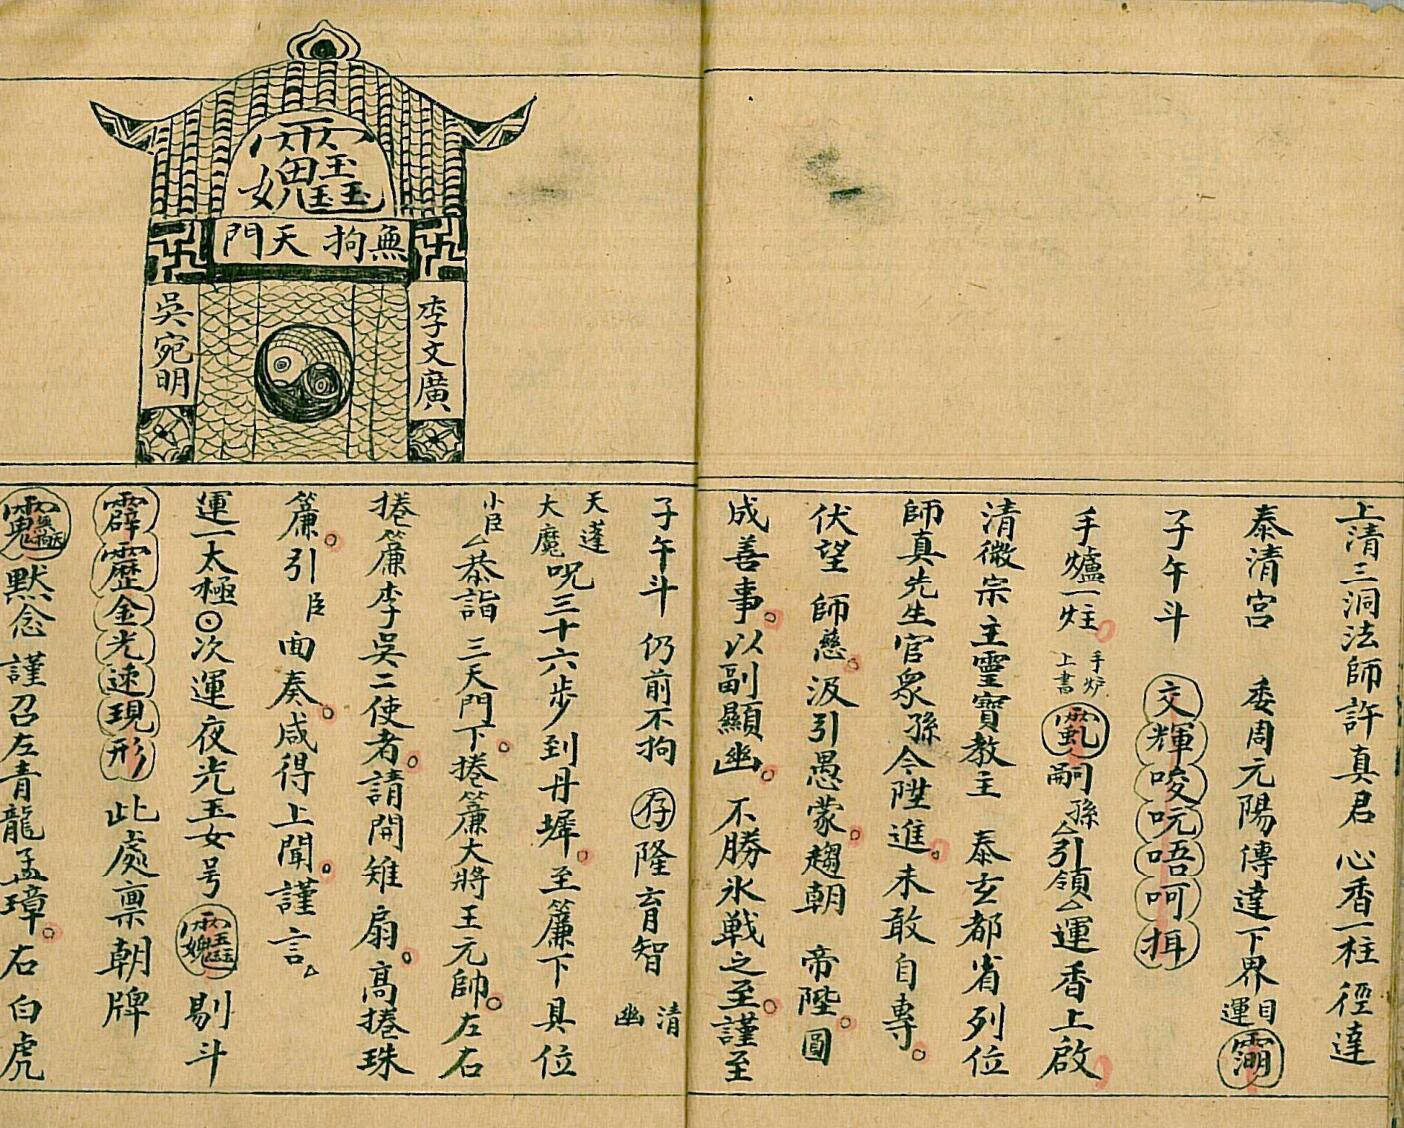 上清三洞法師許真君心香一柱徑達
泰清宮 委周元陽傳達下界目運
子午斗 交輝唆吭唔呵揖
手爐一炷手炉上書 嗣孫厶引領厶運香上啟
清微宗主靈寶教主 泰玄都省列位
師真先生官眾孫今陞進未敢自專
伏望 師慈汲引愚蒙趨朝 帝陛圖
成善事以副顯幽不勝氷戰之至謹至
子午斗 仍前不拘 存隆育智 清幽
天蓬大魔呪三十六步到丹墀至簾下具位
小臣厶恭詣 三天門下捲簾大將王元帥左右
捲簾李吳二使者請開雉扇高捲珠
簾引臣面奏咸得上聞謹言
運一太極⊙次運夜光玉女号 剔斗
霹靂金光速現形 此處禀朝牌
默念謹召左青龍孟璋右白虎
無拘天門
李文廣
吳宛明